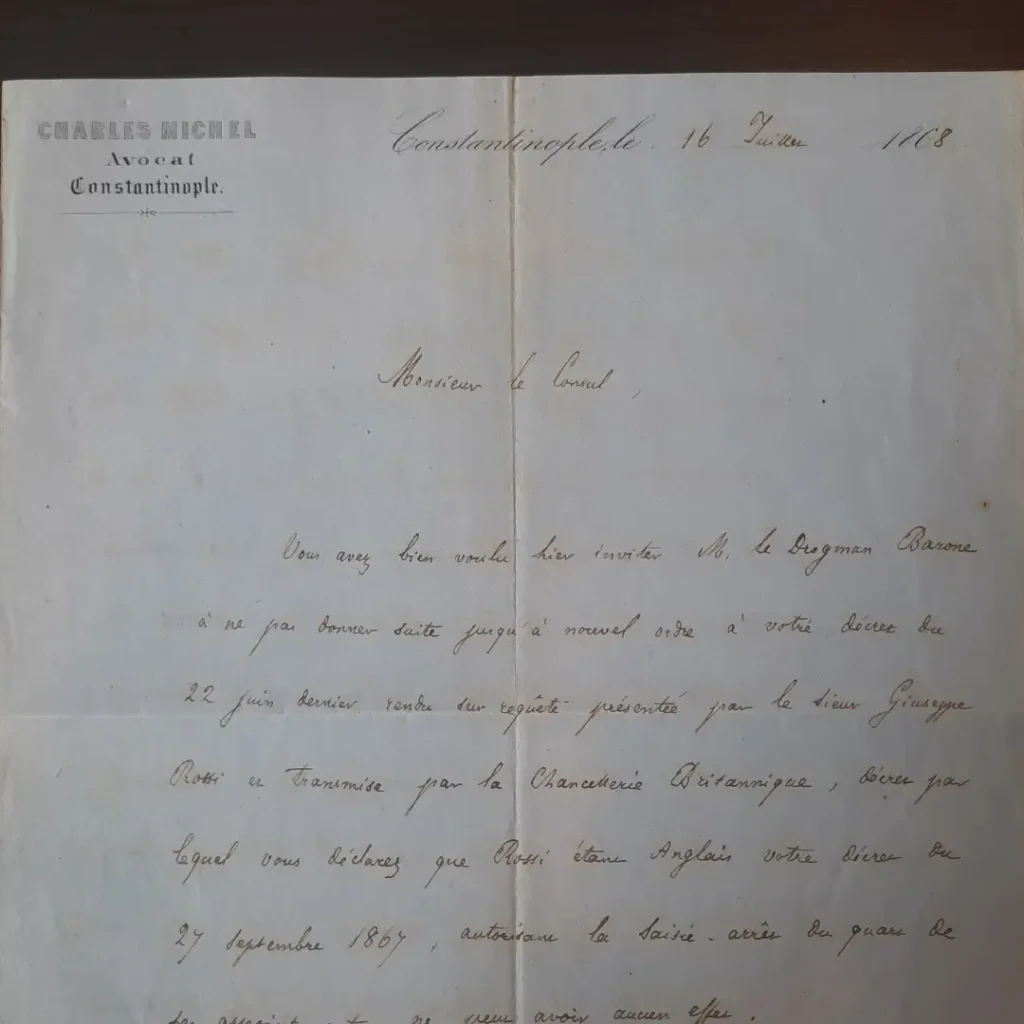 CHARLES MICHEL
Avocat
Constantinople.
Constantinople, le 16 Juillet 1868
Monsieur le Consul,
Vous avez bien voulu hier inviter M. le Drogman Barone
à ne pas donner suite jusqu'à nouvel ordre à votre décret du
22 juin dernier rendu sur requête présentée par le sieur Giuseppe
Rossi et transmise par la Chancellerie Britannique, décret par
lequel vous déclarez que Rossi étant Anglais votre décret du
27 septembre 1867, autorisant la saisie-arrêt du quart de
ne peut avoir aucun effet.